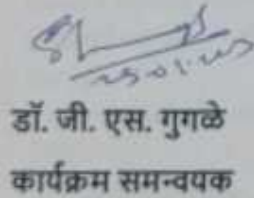 डॉ. जी. एस. गुगळे
कार्यक्रम समन्वयक